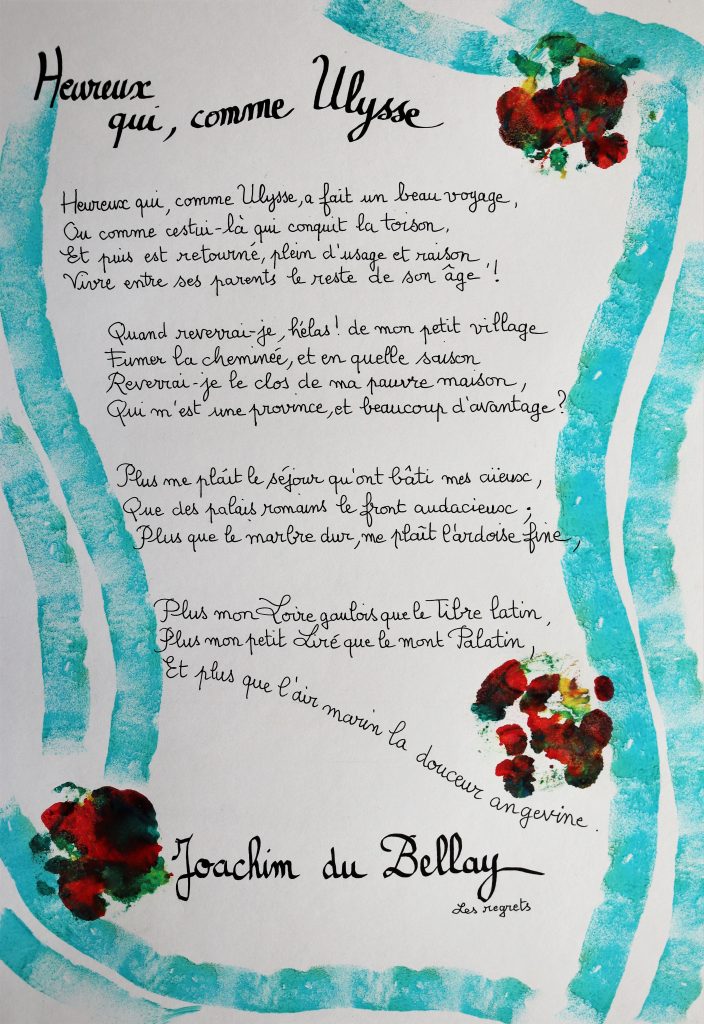 Heureux
qui, comme Ulysse
Heureux qui, comme Ulysse, a fait un beau voyage,
Ou comme cestui-là qui conquit la toison,
Et puis est retourné, plein d'usage et raison,
Vivre entre ses parents le reste de son âge !
Quand reverrai-je, hélas! de mon petit village
Fumer la cheminée, et en quelle saison
Reverrai-je le clos de ma pauvre maison,
Qui m'est une province, et beaucoup d'avantage?
Plus me plaît le séjour qu'ont bâti mes aïeux,
Que des palais romains le front audacieux ;
Plus que le marbre dur, me plaît l'ardoise fine,
Plus mon Loire gaulois que le Tibre latin,
Plus mon petit Liré que le mont Palatin,
Et plus que l'air marin la douceur angevine.
Joachim du Bellay
Les regrets